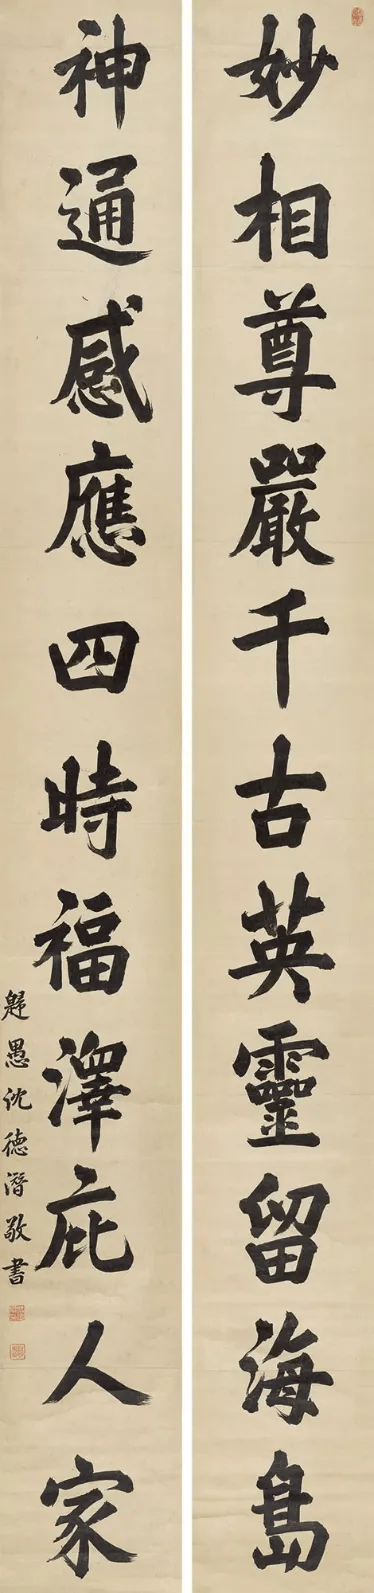 妙相尊嚴千古英靈留海島
神通感應四時福澤庇人家
歸愚沈德潛敬書